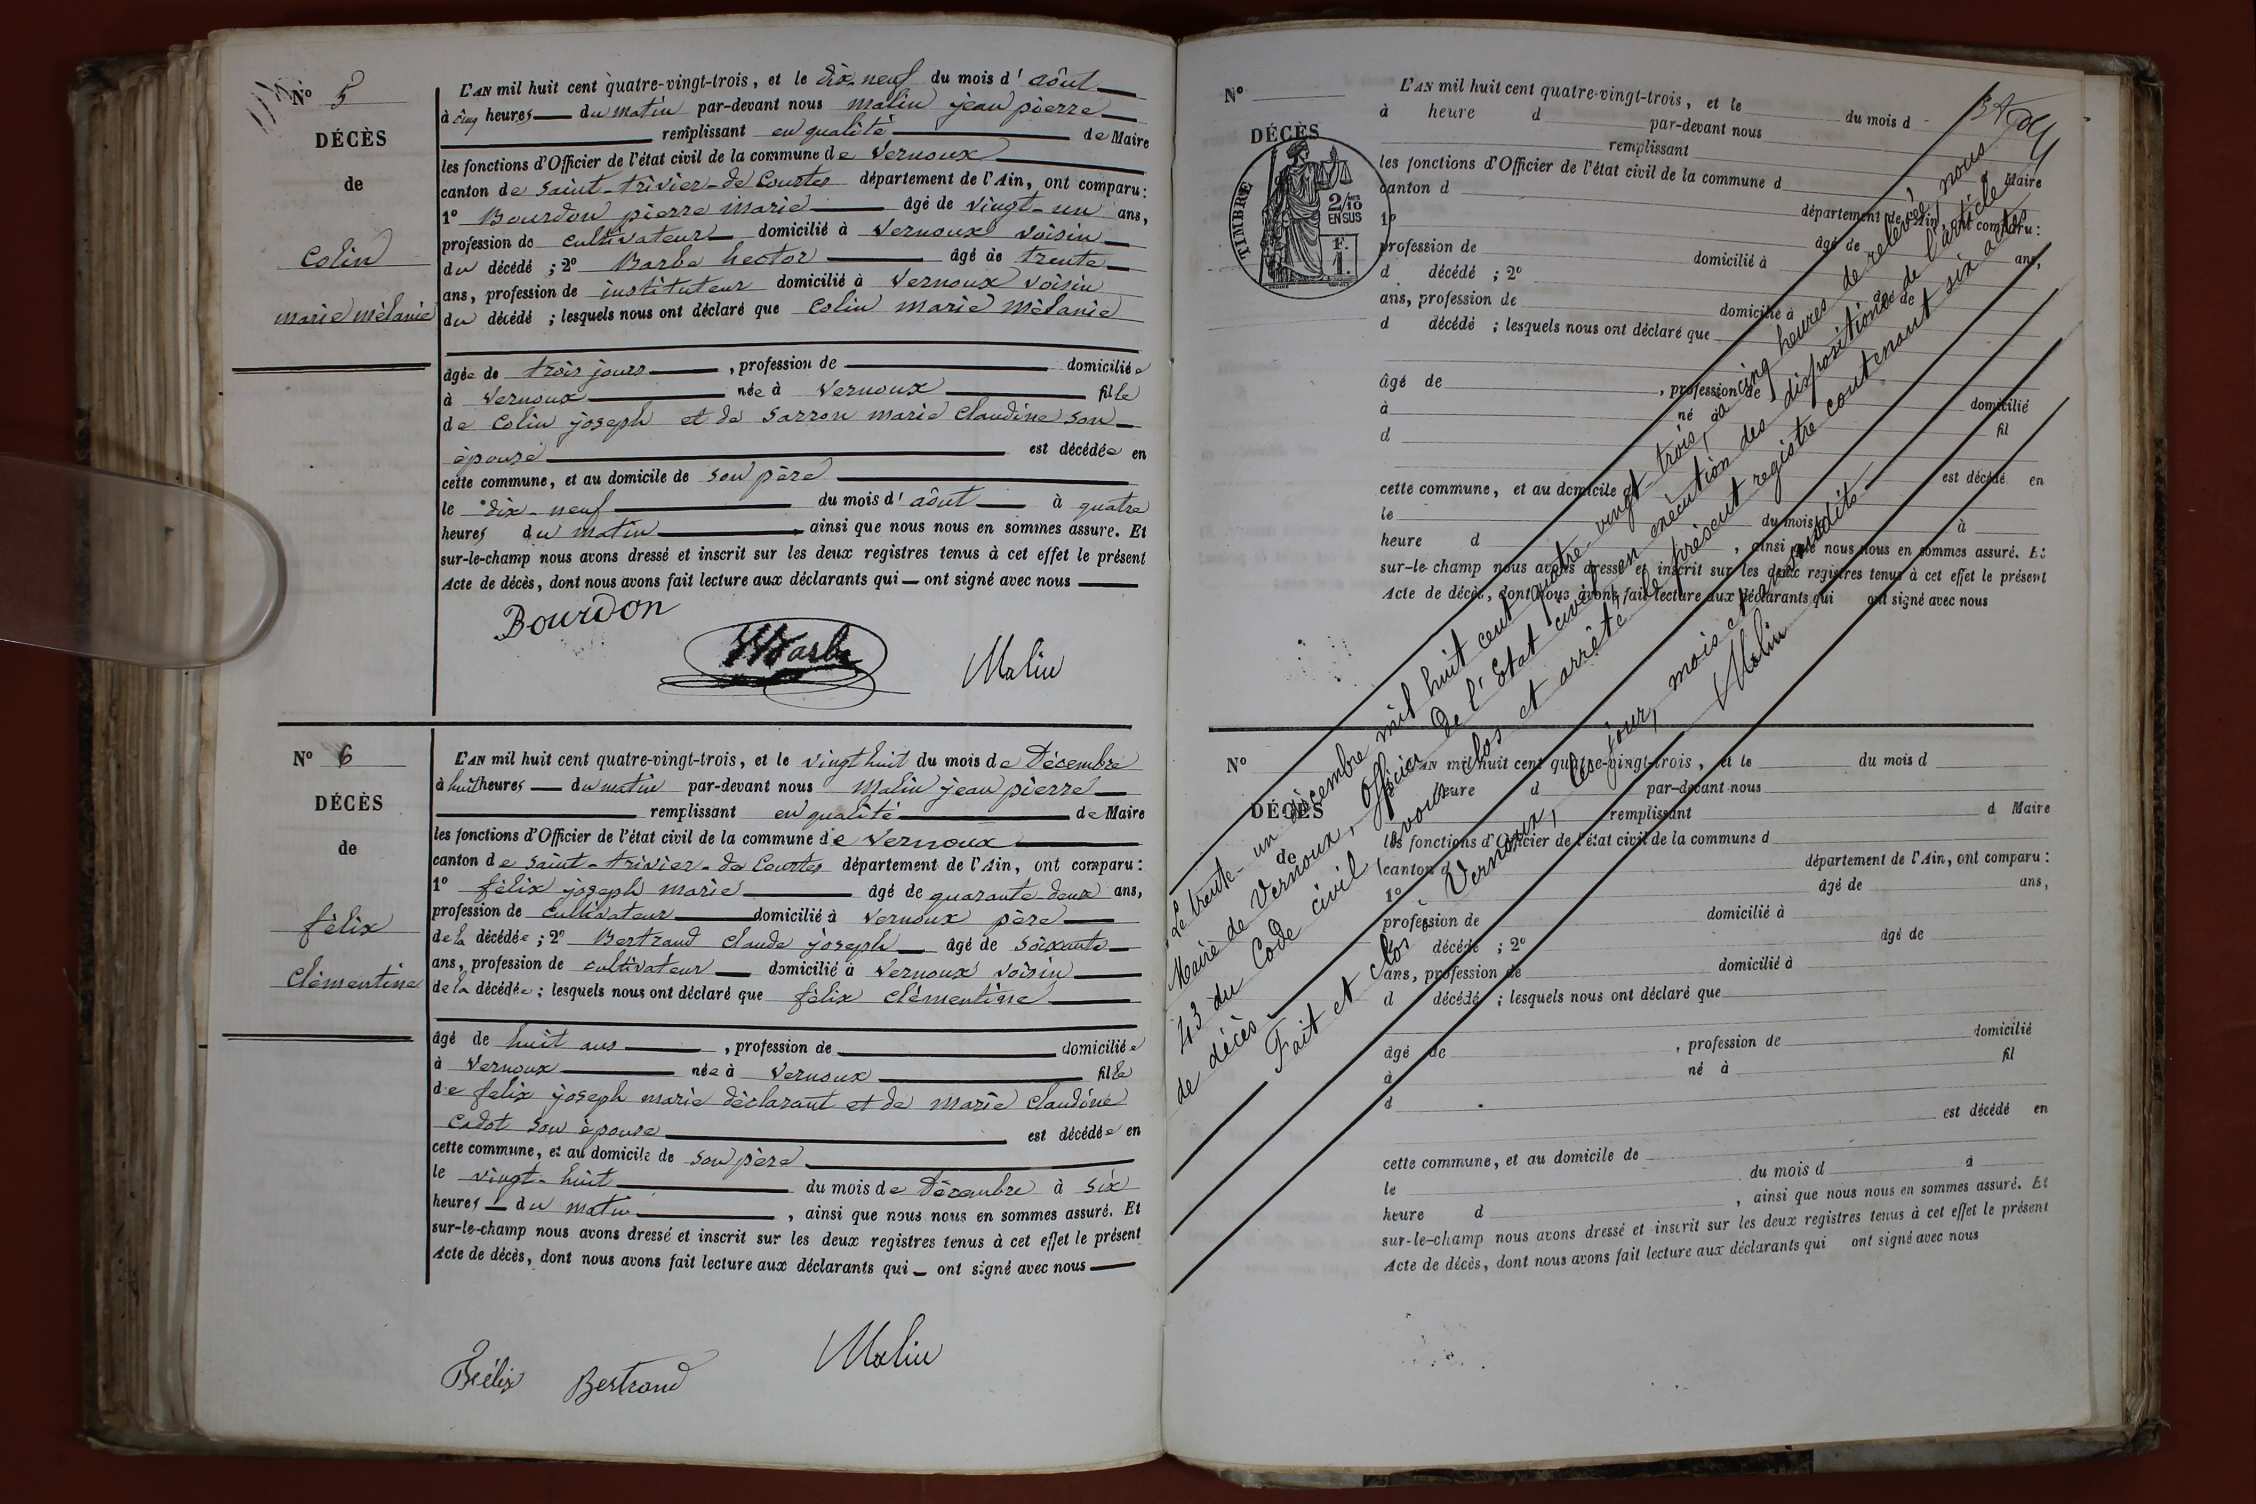 N° 5
DÉCÈS
de
Colin
marie mélanie
L'AN mil huit cent quatre-vingt-trois, et le dix-neuf du mois d'aôut
à cinq heures du matin par-devant nous malin jean pierre
remplissant en qualité de Maire
les fonctions d'Officier de l'état civil de la commune de Vernoux
canton de Saint-trivier-de Courtes département de l'Ain, ont comparu :
1° Bourdon pierre marie âgé de vingt-un ans,
profession de cultivateur domicilié à Vernoux voisin
du décédé ; 2° Barbe hector âgé de trente
ans, profession de instituteur domicilié à Vernoux voisin
du décédé ; lesquels nous ont déclaré que Colin marie mélanie
âgée de trois jours , profession de domiciliée
à Vernoux née à Vernoux fille
de Colin joseph et de Sarron marie Claudine son
épouse est décédée en
cette commune, et au domicile de son père
le dix-neuf du mois d'aôut à quatre
heures du matin ainsi que nous nous en sommes assuré. Et
sur-le-champ nous avons dressé et inscrit sur les deux registres tenus à cet effet le présent
Acte de décès, dont nous avons fait lecture aux déclarants qui ont signé avec nous
Bourdon
HBarbe
Malin
N° 6
DÉCÈS
de
félix
Clémentine
L'AN mil huit cent quatre-vingt-trois, et le vingt huit du mois de Décembre
à huit heures du matin par-devant nous Malin jean pierre
remplissant en qualité de Maire
les fonctions d'Officier de l'état civil de la commune de Vernoux
canton de Saint-trivier-de Courtes département de l'Ain, ont comparu :
1° félix joseph marie âgé de quarante deux ans,
profession de cultivateur domicilié à Vernoux père
de la décédée ; 2° Bertrand Claude joseph âgé de soixante
ans, profession de cultivateur domicilié à Vernoux voisin
de la décédée ; lesquels nous ont déclaré que félix clémentine
âgé de huit ans , profession de domiciliée
à Vernoux née à Vernoux fille
de félix joseph marie déclarant et de marie Claudine
Cadot son épouse est décédée en
cette commune, et au domicile de son père
le vingt-huit du mois de Décembre à six
heures du matin , ainsi que nous nous en sommes assuré. Et
sur-le-champ nous avons dressé et inscrit sur les deux registres tenus à cet effet le présent
Acte de décès, dont nous avons fait lecture aux déclarants qui ont signé avec nous
Félix
Bertrand
Malin
N°
DÉCÈS
TIMBRE
2/10
EN SUS
1 F.
L'AN mil huit cent quatre-vingt-trois, et le du mois d
à heure d par-devant nous
remplissant Maire
les fonctions d'Officier de l'état civil de la commune d
canton d département de l'Ain, ont comparu :
1° âgé de ans,
profession de domicilié à
d décédé ; 2° âgé de
ans, profession de domicilié à
d décédé ; lesquels nous ont déclaré que
âgé de , profession de domicilié
à né à fil
d
est décédé en
cette commune, et au domicile d
le du mois d à
heure d , ainsi que nous nous en sommes assuré. Et
sur-le-champ nous avons dressé et inscrit sur les deux registres tenus à cet effet le présent
Acte de décès, dont nous avons fait lecture aux déclarants qui ont signé avec nous
Le trente-un décembre mil huit cent quatre-vingt trois, à cinq heures de relevée, nous
Maire de Vernoux, officier de l'Etat civil, en exécution des dispositions de l'article
43 du Code civil avons clos et arrêté, le présent registre contenant six actes
de décès
Fait et clos à Vernoux, les jour, mois et an susdits
Malin
N°
DÉCÈS
de
L'AN mil huit cent quatre-vingt-trois, et le du mois d
heure d par-devant nous
remplissant d Maire
les fonctions d'Officier de l'état civil de la commune d
canton d département de l'Ain, ont comparu :
1° âgé de ans,
profession de domicilié à
d décédé ; 2° âgé de
ans, profession de domicilié à
d décédé ; lesquels nous ont déclaré que
âgé de , profession de domicilié
à né à fil
d
est décédé en
cette commune, et au domicile de
le du mois d à
heure d , ainsi que nous nous en sommes assuré. Et
sur-le-champ nous avons dressé et inscrit sur les deux registres tenus à cet effet le présent
Acte de décès, dont nous avons fait lecture aux déclarants qui ont signé avec nous